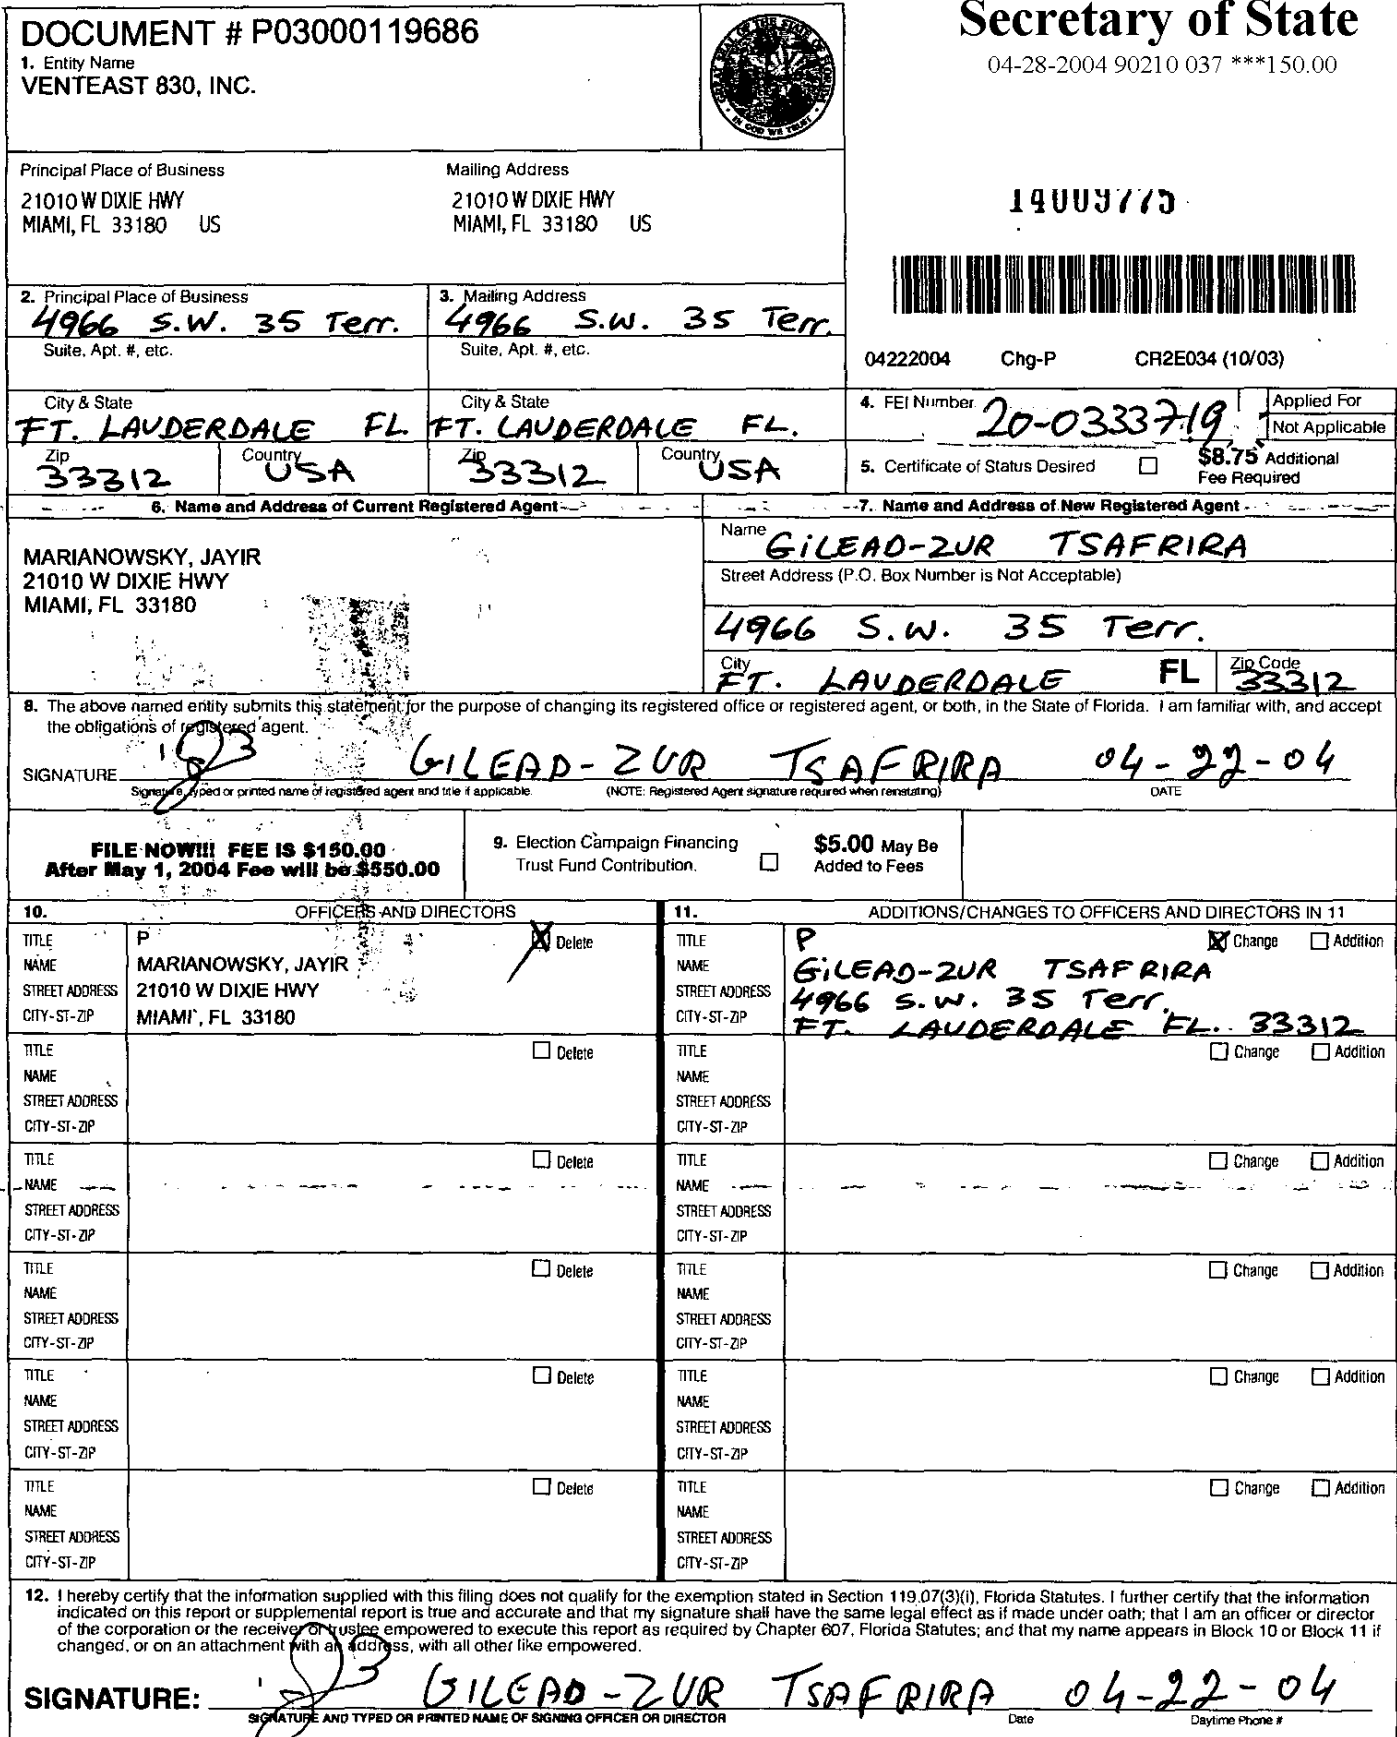 DOCUMENT # P03000119686
1. Entity Name
VENTEAST 830, INC.
Secretary of State
04-28-2004 90210 037 ***150.00
Principal Place of Business
21010 W DIXIE HWY
MIAMI, FL 33180 US
Mailing Address
21010 W DIXIE HWY
MIAMI, FL 33180 US
14009775
2. Principal Place of Business
4966 S.W. 35 Terr.
Suite, Apt. #, etc.
City & State
FT. LAUDERDALE FL
Zip 33312 Country USA
3. Mailing Address
4966 S.W. 35 Terr.
Suite, Apt. #, etc.
City & State
FT. LAUDERDALE FL.
Zip 33312 Country USA
04222004 Chg-P CR2E034 (10/03)
4. FEI Number 20-0333719
Applied For
Not Applicable
5. Certificate of Status Desired
$8.75 Additional
Fee Required
6. Name and Address of Current Registered Agent
MARIANOWSKY, JAYIR
21010 W DIXIE HWY
MIAMI, FL 33180
7. Name and Address of New Registered Agent
Name GILEAD-ZUR TSAFRIRA
Street Address (P.O. Box Number is Not Acceptable)
4966 S.W. 35 Terr.
City FT. LAUDERDALE FL Zip Code 33312
8. The above named entity submits this statement for the purpose of changing its registered office or registered agent, or both, in the State of Florida. I am familiar with, and accept
the obligations of registered agent.
SIGNATURE GILEAD-ZUR TSAFRIRA 04-22-04
Signature, typed or printed name of registered agent and title if applicable. (NOTE: Registered Agent signature required when reinstating) DATE
FILE NOW!!! FEE IS $150.00
After May 1, 2004 Fee will be $550.00
9. Election Campaign Financing
Trust Fund Contribution.
$5.00 May Be
Added to Fees
10. OFFICERS AND DIRECTORS
11. ADDITIONS/CHANGES TO OFFICERS AND DIRECTORS IN 11
TITLE P Delete
NAME MARIANOWSKY, JAYIR
STREET ADDRESS 21010 W DIXIE HWY
CITY-ST-ZIP MIAMI, FL 33180
TITLE P Change Addition
NAME GILEAD-ZUR TSAFRIRA
STREET ADDRESS 4966 S.W. 35 Terr.
CITY-ST-ZIP FT. LAUDERDALE FL. 33312
TITLE Delete
NAME
STREET ADDRESS
CITY-ST-ZIP
TITLE Change Addition
NAME
STREET ADDRESS
CITY-ST-ZIP
TITLE Delete
NAME
STREET ADDRESS
CITY-ST-ZIP
TITLE Change Addition
NAME
STREET ADDRESS
CITY-ST-ZIP
TITLE Delete
NAME
STREET ADDRESS
CITY-ST-ZIP
TITLE Change Addition
NAME
STREET ADDRESS
CITY-ST-ZIP
TITLE Delete
NAME
STREET ADDRESS
CITY-ST-ZIP
TITLE Change Addition
NAME
STREET ADDRESS
CITY-ST-ZIP
TITLE Delete
NAME
STREET ADDRESS
CITY-ST-ZIP
TITLE Change Addition
NAME
STREET ADDRESS
CITY-ST-ZIP
12. I hereby certify that the information supplied with this filing does not qualify for the exemption stated in Section 119.07(3)(i), Florida Statutes. I further certify that the information
indicated on this report or supplemental report is true and accurate and that my signature shall have the same legal effect as if made under oath; that I am an officer or director
of the corporation or the receiver or trustee empowered to execute this report as required by Chapter 607, Florida Statutes; and that my name appears in Block 10 or Block 11 if
changed, or on an attachment with an address, with all other like empowered.
SIGNATURE: GILEAD-ZUR TSAFRIRA 04-22-04
SIGNATURE AND TYPED OR PRINTED NAME OF SIGNING OFFICER OR DIRECTOR Date Daytime Phone #